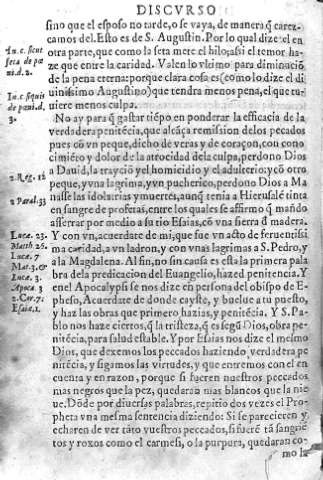 DISCVRSO
sino que el esposo no tarde, o se vaya, de manera q̃ carez-
camos del. Esto es de S. Augustin. Por lo qual dize el en
otra parte, que como la seta mete el hilo; assi el temor ha-
ze que entre la caridad. Valen lo vltimo para diminució
de la pena eterna: porque clara cosa es (como lo dize el di
uinissimo Augustino) que tendra menos pena, el que tu-
uiere menos culpa.
No ay para q̃ gastar tiẽpo en ponderar la efficacia de la
verdadera penitẽcia, que alcãça remission de los pecados
pues cõ vn peque, dicho de veras y de coraçon, con cono
cimiẽto y dolor de la atrocidad de la culpa, perdono Dios
a Dauid, la trayció y el homicidio y el adulterio: y cõ otro
peque, y vna lagrima, y vn pucherico, perdono Dios a Ma
nasse las idolatrias y muertes, aunq̃ tenia a Hierusalẽ tinta
en sangre de profetas, entre los quales se affirmo q̃ mando
asserrar por medio a su tio Esaias, cõ vna sierra d̃ madera.
Y con vn, acuerdate de mi, que fue vn acto de feruentissi
ma caridad, a vn ladron, y con vnas lagrimas a S. Pedro, y
a la Magdalena. Al fin, no sin causa es esta la primera pala
bra de la predicacion del Euangelio, hazed penitencia. Y
en el Apocalypsi se nos dize en persona del obispo de E-
pheso, Acuerdate de donde cayste, y buelue a tu puesto,
y haz las obras que primero hazias, y penitẽcia. Y S. Pa
blo nos haze ciertos, q̃ la tristeza, q̃ es segũ Dios, obra pe-
nitẽcia, para salud estable. Y por Esaias nos dize el mesmo
Dios, que dexemos los pecados haziendo verdadera pe
nitẽcia, y sigamos las virtudes, y que entremos con el en
cuenta y en razon, porque si fueren nuestros peccados
mas negros que la pez, quedaran mas blancos que la nie
ue. Dõde por diuersas palabras, repitio dos vezes el Pro-
pheta vna mesma sentencia diziendo: Si se parecieren y
echaren de ver tãto vuestros peccados, si fuerẽ tã sangriẽ
tos y roxos como el carmesi, o la purpura, quedaran co-
mo la
In. c. sicut
seta de pœ
ni. d. 2.
In. c. si quis
de pœni. d.
3.
2. Reg. 12
2. Paral. 33
Luca. 23.
Matth. 26.
Luca. 7
Mat. 3. &
Luca. 3.
Apoca. 3
2. Cor. 7.
Esaiæ. 1.